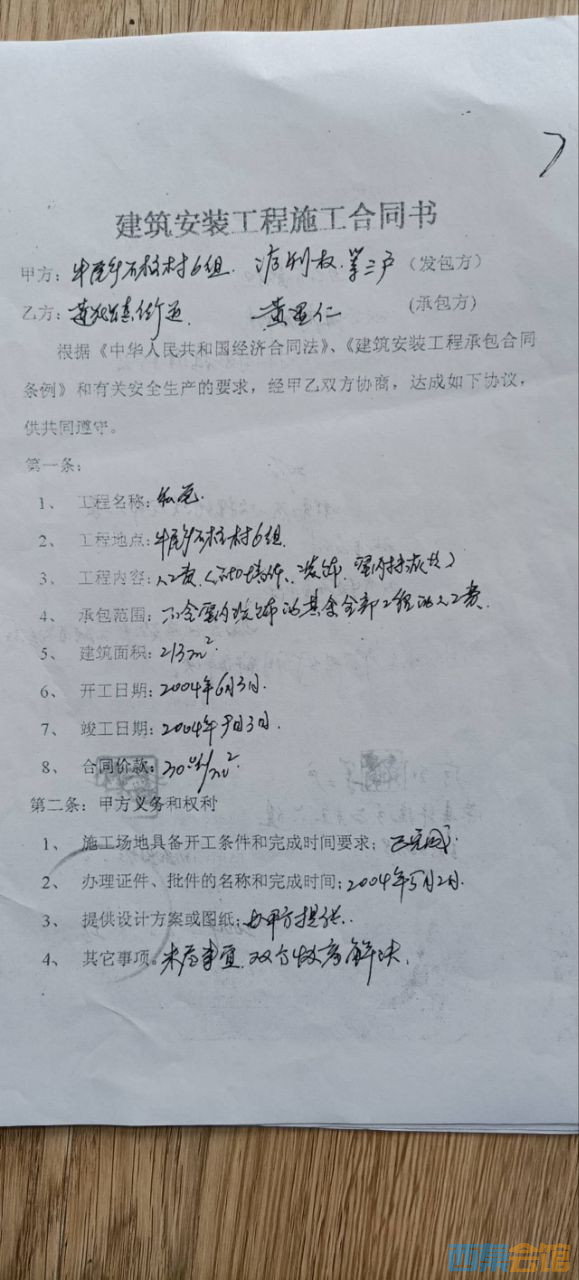 建筑安装工程施工合同书
甲方：牛尾乡石柱村6组. 第三户（发包方）
乙方： 黄显仁 (承包方)
根据《中华人民共和国经济合同法》、《建筑安装工程承包合同
条例》和有关安全生产的要求，经甲乙双方协商，达成如下协议，
供共同遵守。
第一条：
1、 工程名称：私宅.
2、 工程地点：牛尾乡石柱村6组.
3、 工程内容：人工费（ 装饰、室内
4、 承包范围：不含室内装饰的其余全部工程的人工费.
5、 建筑面积：213m².
6、 开工日期：2004年6月3日.
7、 竣工日期：2004年9月3日.
8、 合同价款： /m²
第二条：甲方义务和权利
1、 施工场地具备开工条件和完成时间要求；已完成.
2、 办理证件、批件的名称和完成时间：2004年5月2日.
3、 提供设计方案或图纸：由甲方提供.
4、 其它事项。未尽事宜.双方协商解决.
西祠会馆